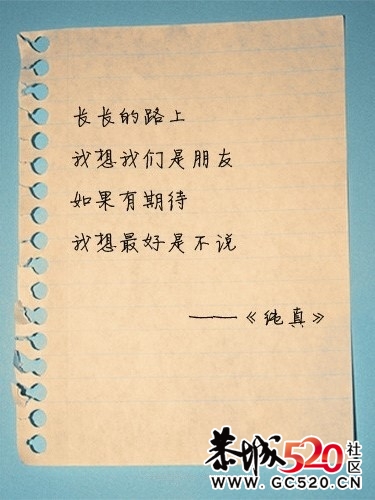 长长的路上
我想我们是朋友
如果有期待
我想最好是不说
——《纯真》
恭城520社区
WWW.GC520.CN